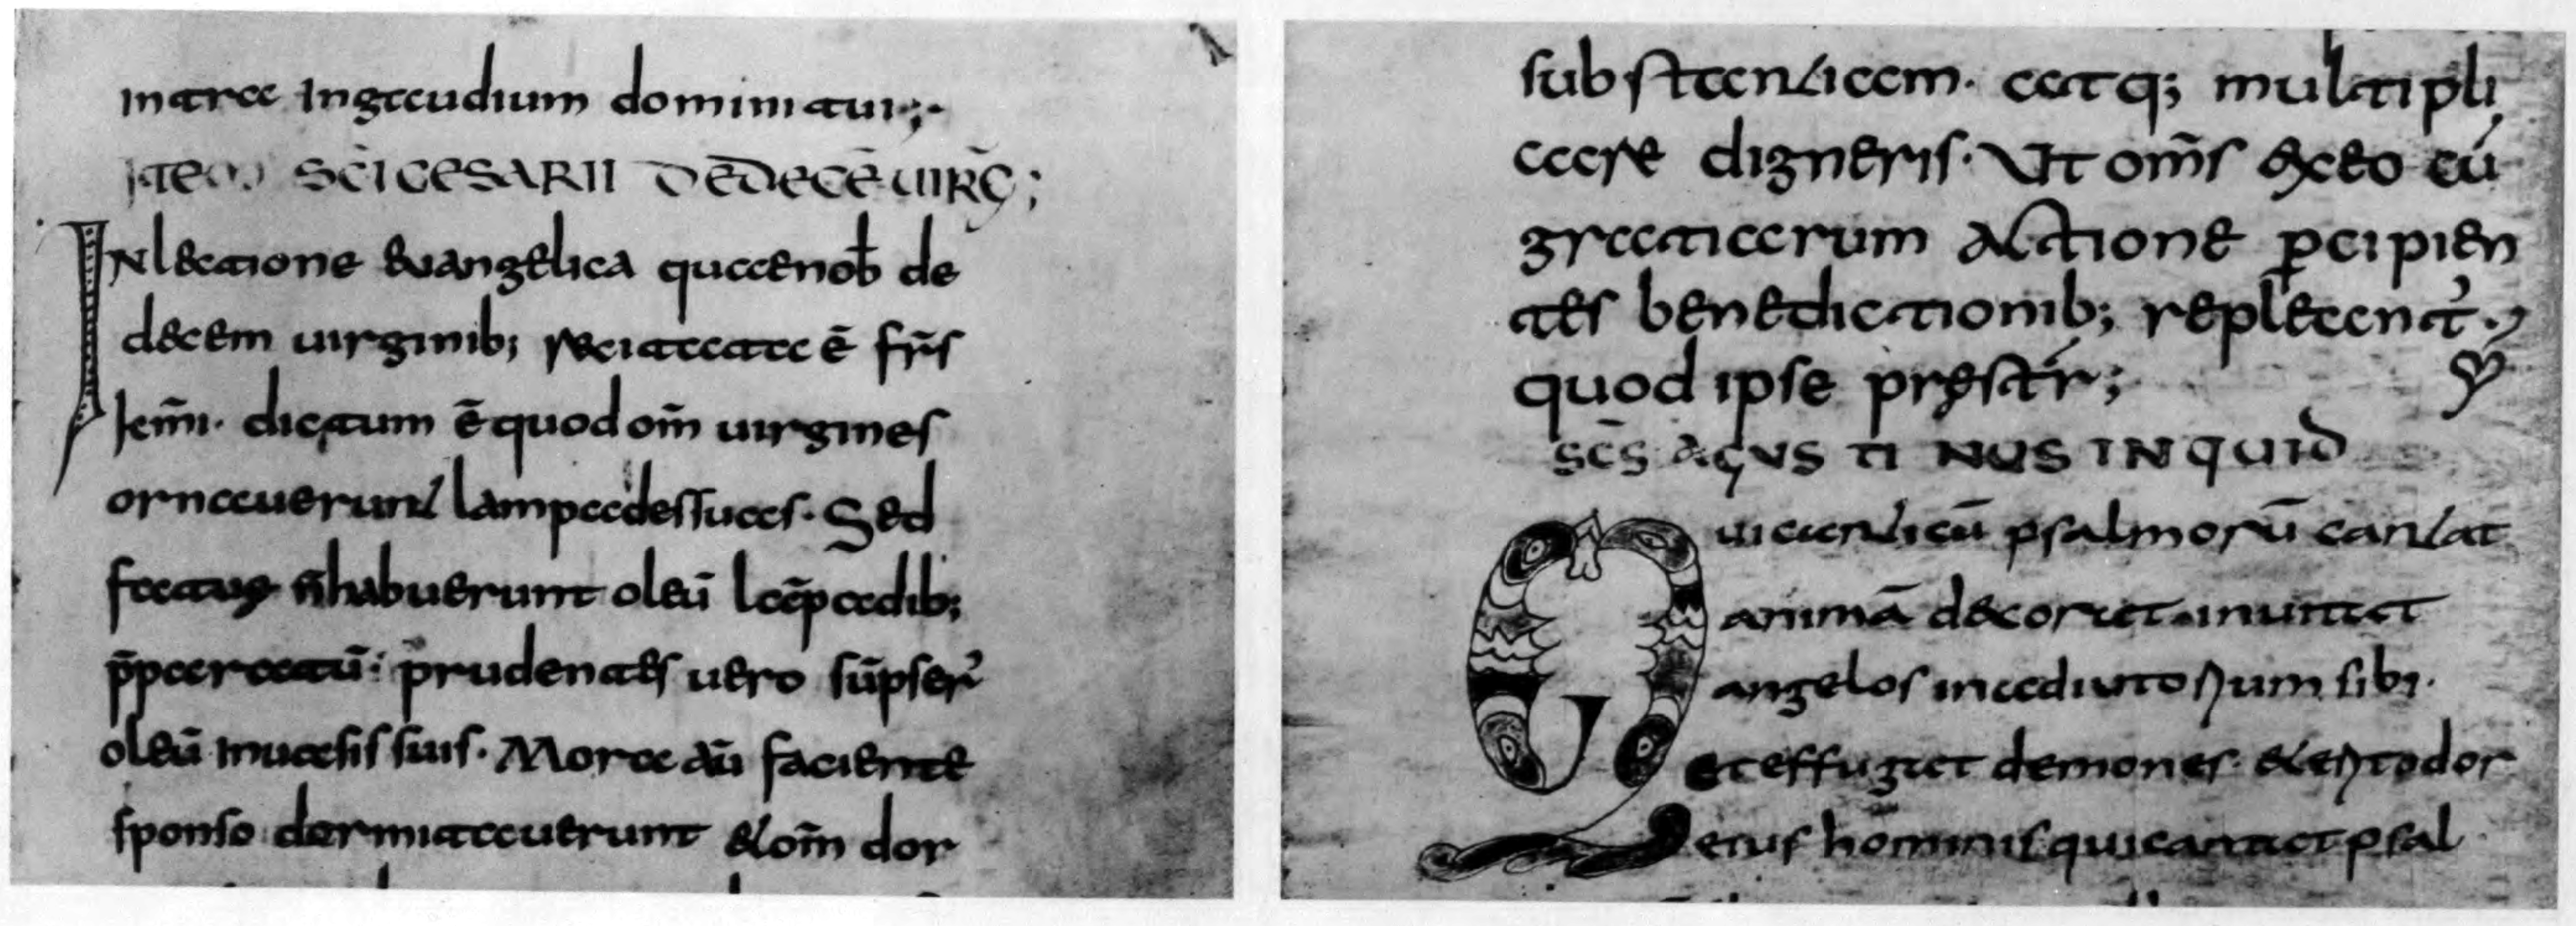 intra in gaudium domini tui;
ITEM SCI CESARII DE DECE UIRG;
IN lectione euangelica quae nob de
decem uirginib; recitata ē fr̄s
kr̄mi. dictum ē quod om̄ uirgines
ornauerunt lampades suas. Sed
fatuę n̄ habuerunt oleū lāpadib;
p̄paratū: prudentes uero sūpser̄
oleū in uasis suis. Mora aū faciente
sponso dormitauerunt et om̄ dor
substantiam. atq; multipli
care digneris. Ut om̄s ex eo cū
gratiarum actione percipien
tes benedictionib; repleant̄.
quod ipse pręstar̄;
SC̄S AGUSTINUS INQUID
Qui canticū psalmorū cantat
animā decorat. inuitat
angelos in adiutorium sibi.
et effugat demones. et est odor
eius hominis qui cantat psal